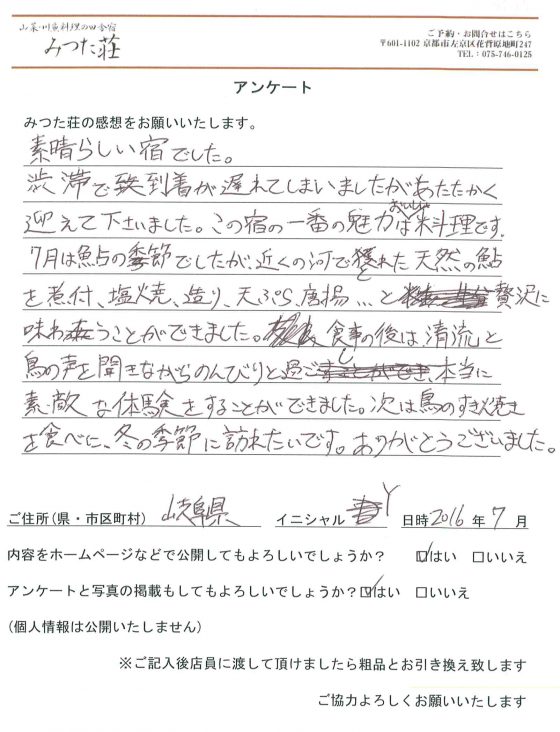 山菜・川魚料理の四季宿
みつた荘
ご予約・お問合せはこちら
〒601-1102 京都市左京区花脊原地町247
TEL：075-746-0125
アンケート
みつた荘の感想をお願いいたします。
素晴らしい宿でした。
渋滞で到着が遅れてしまいましたがあたたかく
迎えて下さいました。この宿の一番の魅力はおいしい料理です。
7月は鮎の季節でしたが、近くの河で獲れた天然の鮎
を煮付、塩焼、造り、天ぷら、唐揚…と贅沢に
味わうことができました。食事の後は、清流と
鳥の声を聞きながらのんびりと過ごし、本当に
素敵な体験をすることができました。次は鳥のすき焼き
を食べに、冬の季節に訪れたいです。ありがとうございました。
ご住所（県・市区町村） 岐阜県 イニシャル Y 日時 2016 年 7 月
内容をホームページなどで公開してもよろしいでしょうか？ ☑はい □いいえ
アンケートと写真の掲載もしてもよろしいでしょうか？☑はい □いいえ
（個人情報は公開いたしません）
※ご記入後店員に渡して頂けましたら粗品とお引き換え致します
ご協力よろしくお願いいたします